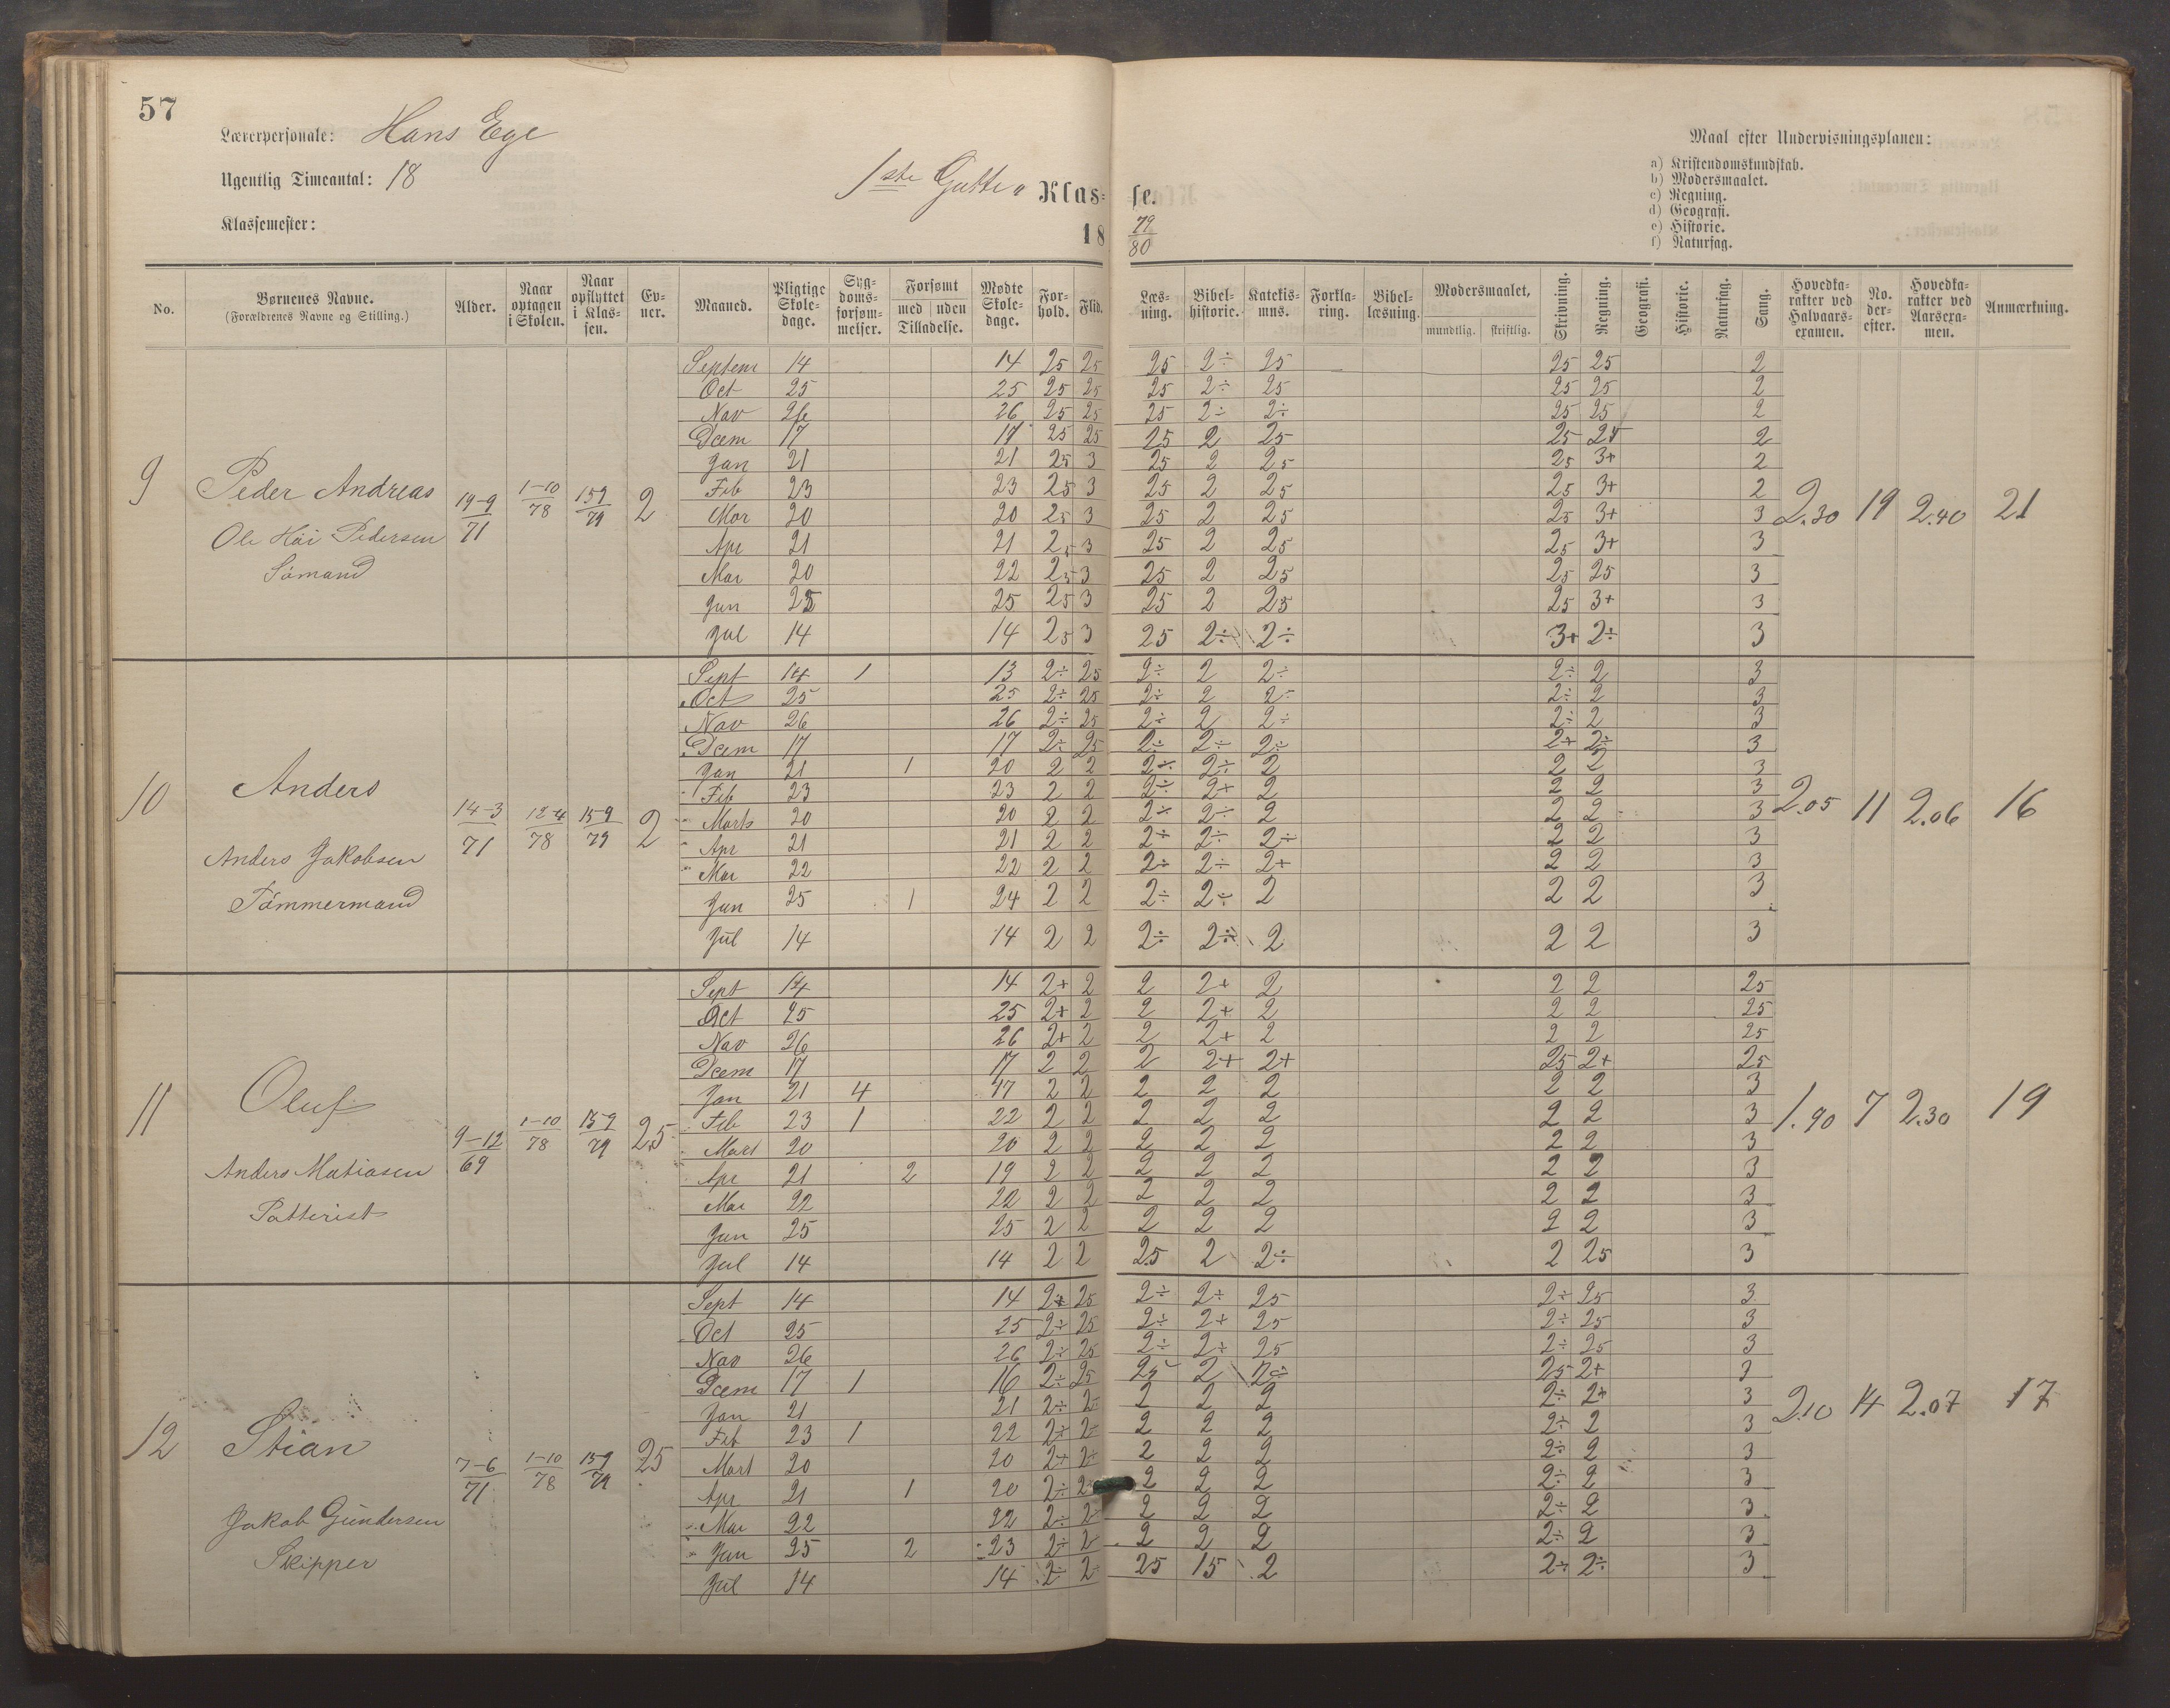 57
Lærerpersonale: Hans Ege
Ugentlig Timeantal: 18
Klassemester:
1ste Gutte " Klasse.
18 79/80
Maal efter Undervisningsplanen:
a) Kristendomskundskab.
b) Modersmaalet.
c) Regning.
d) Geografi.
e) Historie.
f) Naturfag.
No. | Børnenes Navne. (Forældrenes Navne og Stilling.) | Alder. | Naar optagen i Skolen. | Naar opflyttet i Klassen. | Evner. | Maaned. | Pligtige Skoledage. | Sygdomsforsømmelser. | Forsømt med uden Tilladelse. | Mødte Skoledage. | Forhold. | Flid. | Læsning. | Bibelhistorie. | Katekismus. | Forklaring. | Bibellæsning. | Modersmaalet, mundtlig. skriftlig. | Skrivning. | Regning. | Geografi. | Historie. | Naturfag. | Sang. | Hovedkarakter ved Halvaarsexamen. | No. derefter. | Hovedkarakter ved Aarsexamen. | Anmærkning.
9 Peder Andreas
Ole Hâi Pedersen
Sømand
19-9/71 1-10/78 15 9/79 2
Septem 14 14 25 25 25 2÷ 25 25 25 2
Oct 25 25 25 25 25 2÷ 25 25 25 2
Nov 26 26 25 25 25 2÷ 2÷ 25 25 2
Dcem 17 17 25 25 25 2 25 25 25 2
Jan 21 21 25 3 25 2 25 25 3+ 2
Feb 23 23 25 3 25 2 25 25 3+ 2
Mar 20 20 25 3 25 2 25 25 3+ 3
Apr 21 21 25 3 25 2 25 25 3+ 3
Mai 20 22 25 3 25 2 25 25 25 3
Jun 25 25 25 3 25 2 25 25 3+ 3
Jul 14 14 25 3 25 2÷ 2÷ 3+ 2÷ 3
2.30 19 2.40 21
10 Anders
Anders Jakobsen
Tømmermand
14-3/71 12-4/78 15 9/79 2
Sept 14 1 13 2÷ 25 2÷ 2 2÷ 2÷ 2 3
Oct 25 25 2÷ 25 2÷ 2 2÷ 2÷ 2 3
Nov 26 26 2÷ 25 2÷ 2 2÷ 2÷ 2 3
Dcem 17 17 2÷ 25 2÷ 2÷ 2÷ 2+ 2÷ 3
Jan 21 1 20 2 2 2÷ 2÷ 2 2 2 3
Feb 23 23 2 2 2÷ 2+ 2 2 2 3
Marts 20 20 2 2 2÷ 2÷ 2 2 2 3
Apr 21 21 2 2 2÷ 2÷ 2÷ 2 2 3
Mai 22 22 2 2 2÷ 2÷ 2+ 2 2 3
Jun 25 1 24 2 2 2÷ 2÷ 2 2 2 3
Jul 14 14 2 2 2÷ 2÷ 2 2 2 3
2.05 11 2.06 16
11 Oluf
Anders Matiasen
9-12/69 1-10/78 15 9/79 25
Sept 14 14 2+ 2 2 2+ 2 2 2 25
Oct 25 25 2+ 2 2 2+ 2 2 2 25
Nov 26 26 2+ 2 2 2+ 2 2 2 25
Dcem 17 17 2 2 2 2+ 2+ 25 2+ 25
Jan 21 4 17 2 2 2 2 2 2 2 3
Feb 23 1 22 2 2 2 2 2 2 2 3
Mart 20 20 2 2 2 2 2 2 2 3
Apr 21 2 19 2 2 2 2 2 2 2 3
Mai 22 22 2 2 2 2 2 2 2 3
Jun 25 25 2 2 2 2 2 2 2 3
Jul 14 14 2 2 25 2 2÷ 2 25 3
1.90 7 2.30 19
12 Stian
Jakob Gundersen
Skipper
7-6/71 1-10/78 15 9/79 25
Sept 14 14 2+ 25 2÷ 2÷ 25 2÷ 25 3
Oct 25 25 2÷ 25 2÷ 2+ 25 2÷ 25 3
Nov 26 26 2÷ 25 2÷ 2÷ 25 2÷ 25 3
Dcem 17 1 16 2÷ 25 25 2 2÷ 25 2+ 3
Jan 21 21 2÷ 2÷ 2 2 2 2÷ 2+ 3
Feb 23 1 22 2÷ 2÷ 2 2 2 2÷ 2 3
Mart 20 20 2+ 2÷ 2 2 2 2÷ 2 3
Apr 21 1 20 2÷ 2 2 2 2 2÷ 2 3
Mai 22 22 2÷ 2÷ 2 2 2 2÷ 2 3
Jun 25 2 23 2÷ 2÷ 2 2 2 2÷ 2 3
Jul 14 14 2÷ 2÷ 25 15 2 2÷ 2÷ 3
2.10 14 2.07 17